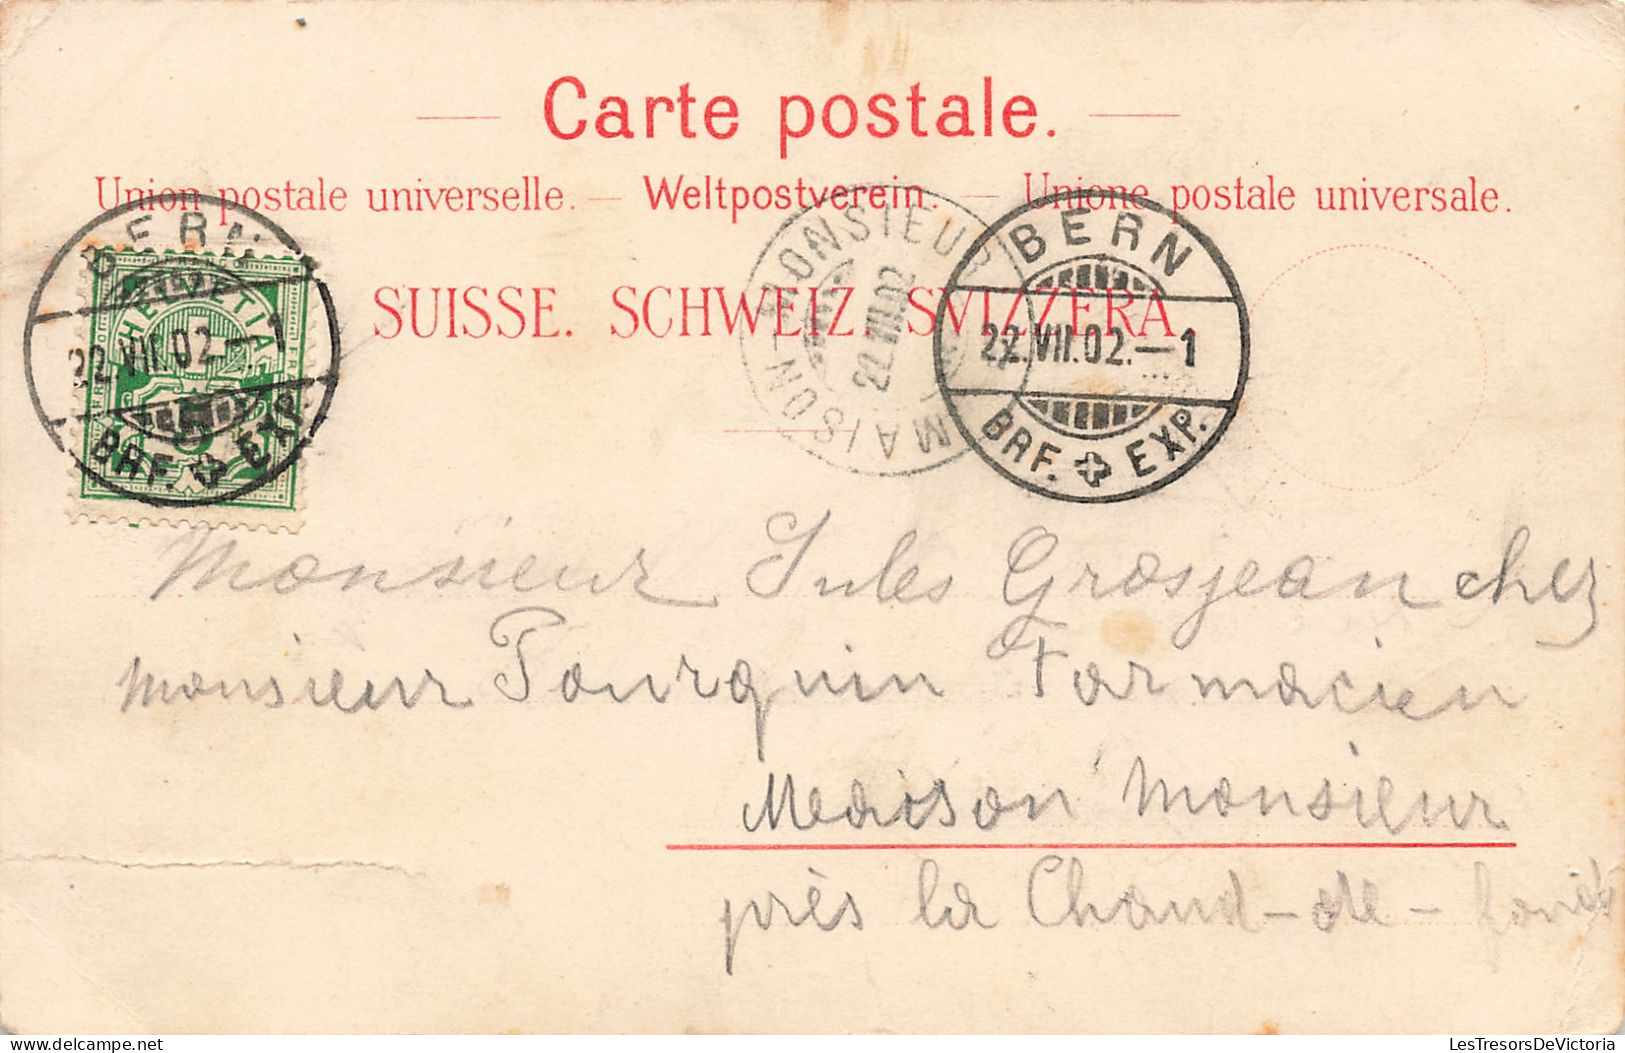 Carte postale.
Union postale universelle. — Weltpostverein. — Unione postale universale.
SUISSE. SCHWEIZ. SVIZZERA.
BERN
22.VII.02.–1
BRF. EXP.
FRANCO
HELVETIA
5
MAISON-MONSIEUR
22.VII.02
BERN
22.VII.02.–1
BRF. EXP.
Monsieur Jules Grosjean chez
monsieur Pourquin Farmacien
Maison Monsieur
près la Chaud-de-fonds
LesTresorsDeVictoria